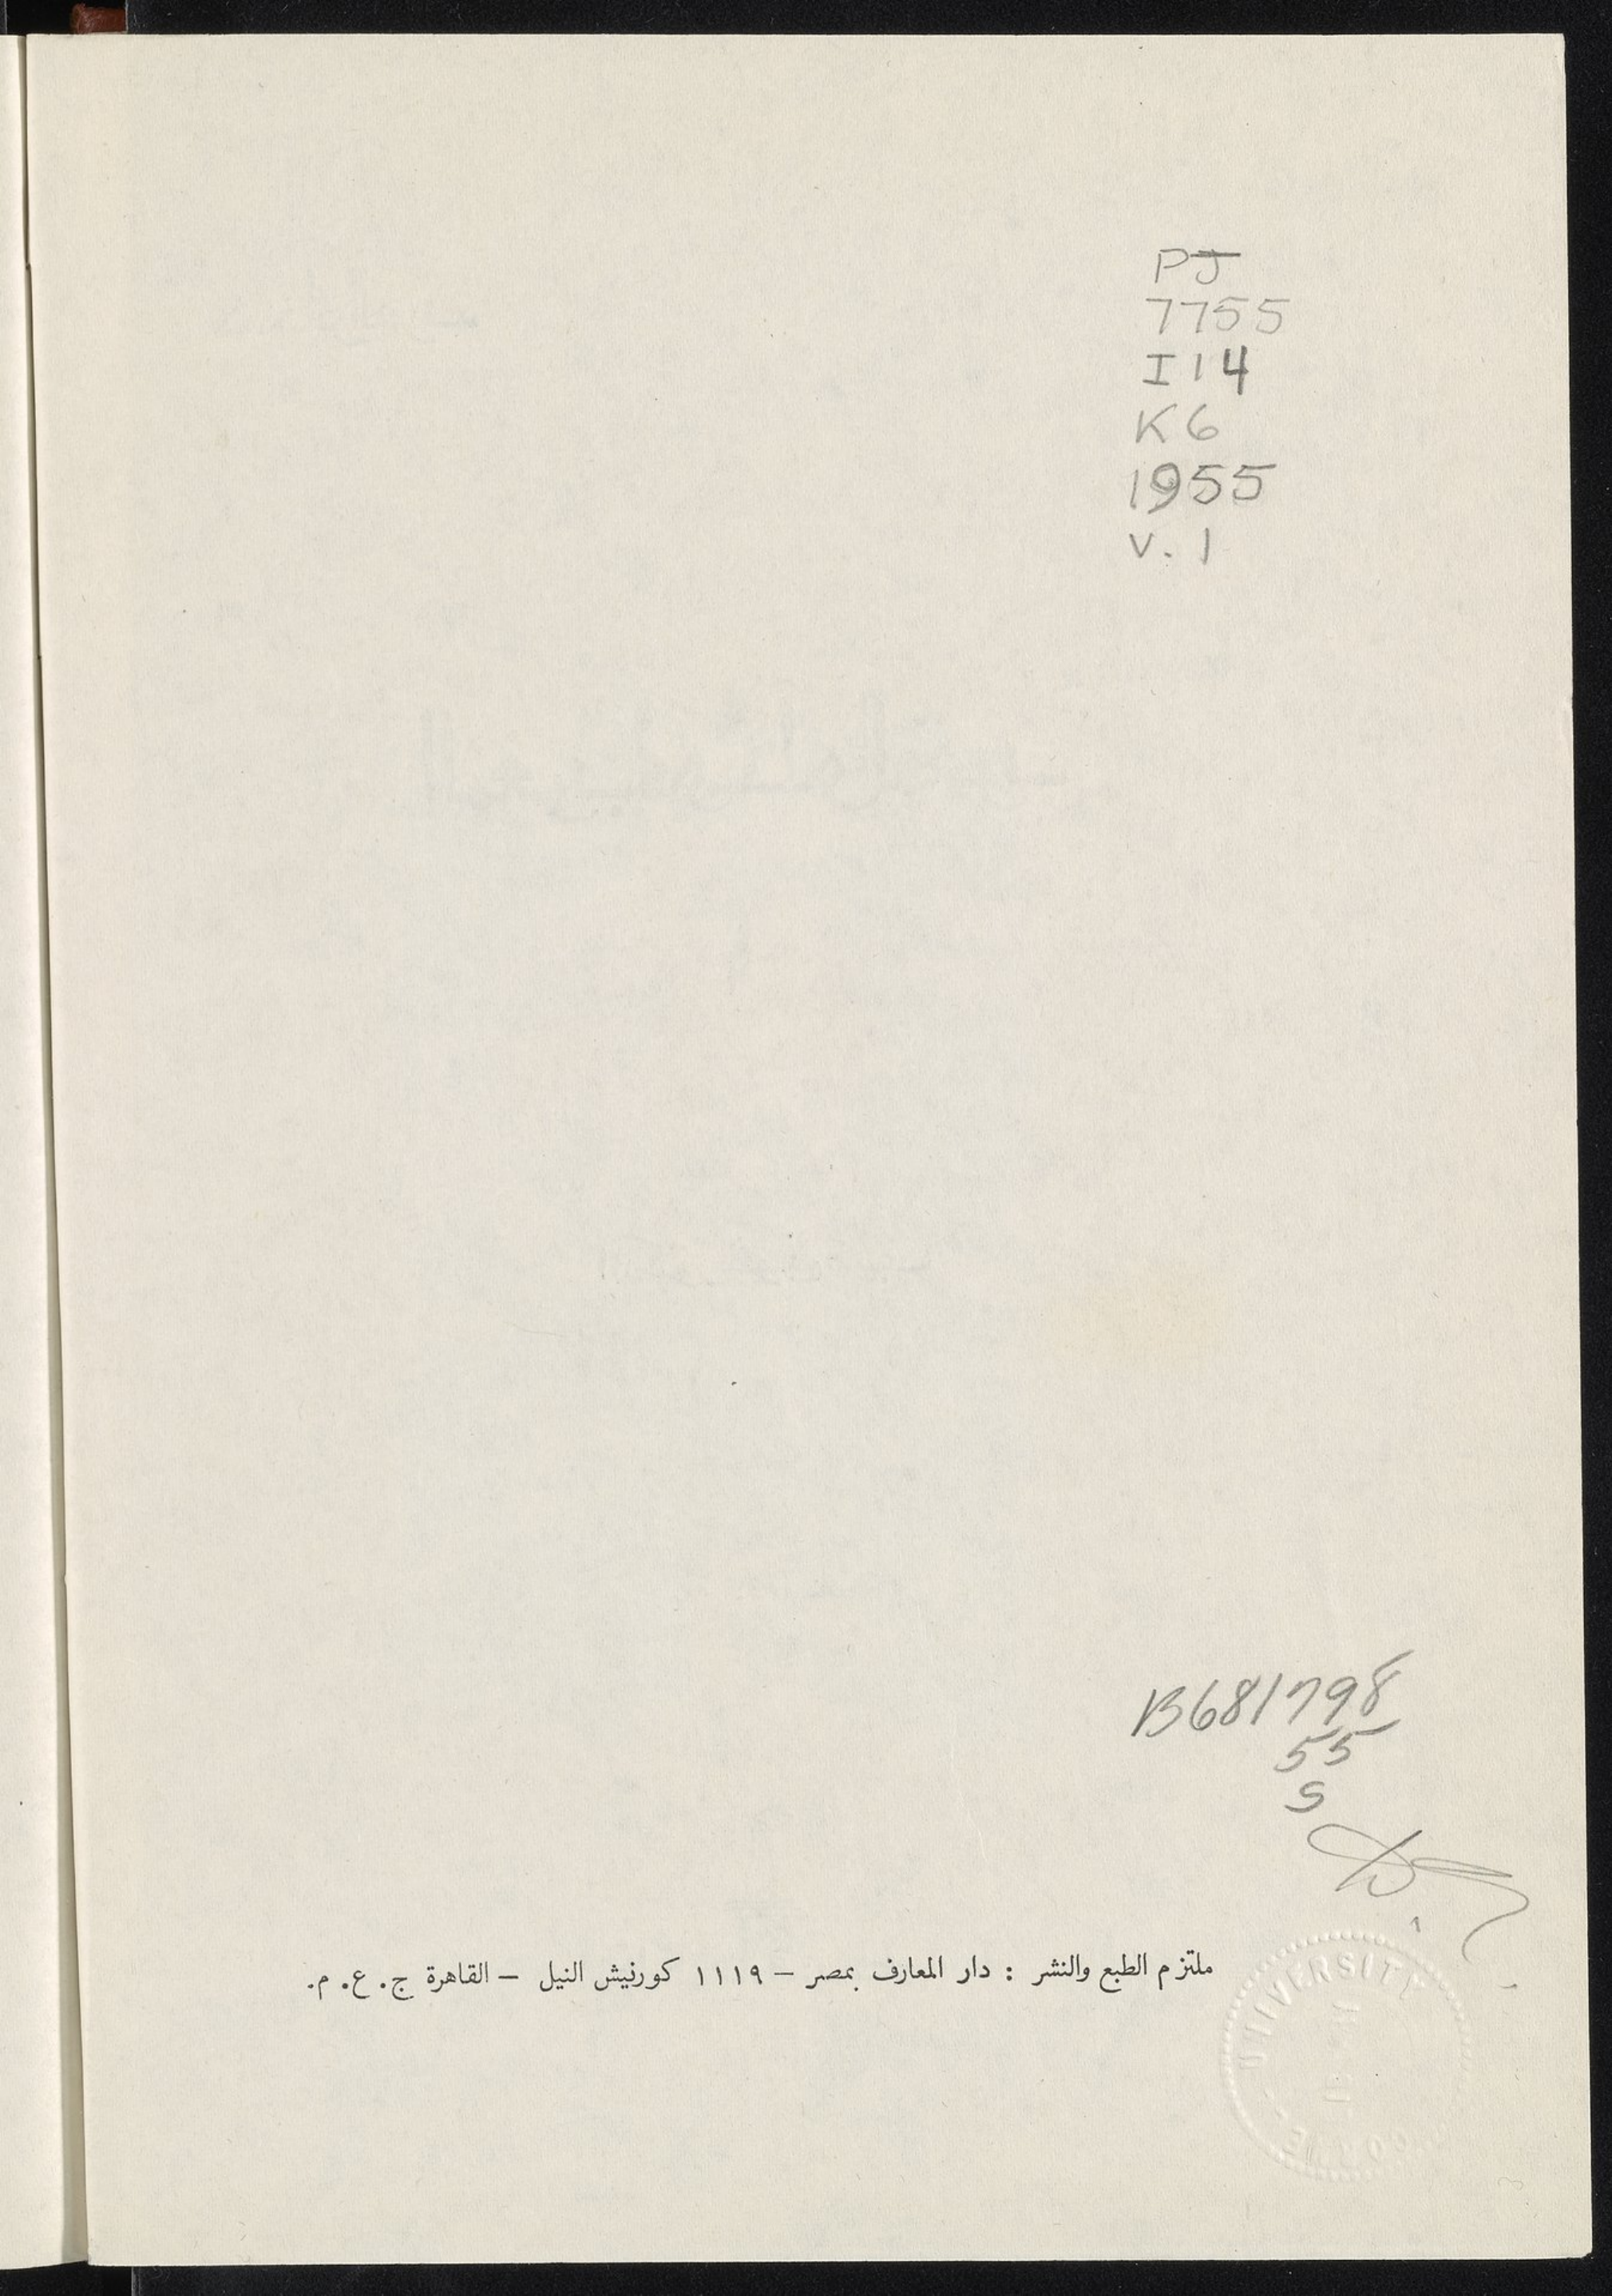 PJ
7755
I14
K6
1955
v. 1
B681798
55
S
ملتزم الطبع والنشر : دار المعارف بمصر – ١١١٩ كورنيش النيل – القاهرة ج. ع. م.
UNIVERSITY